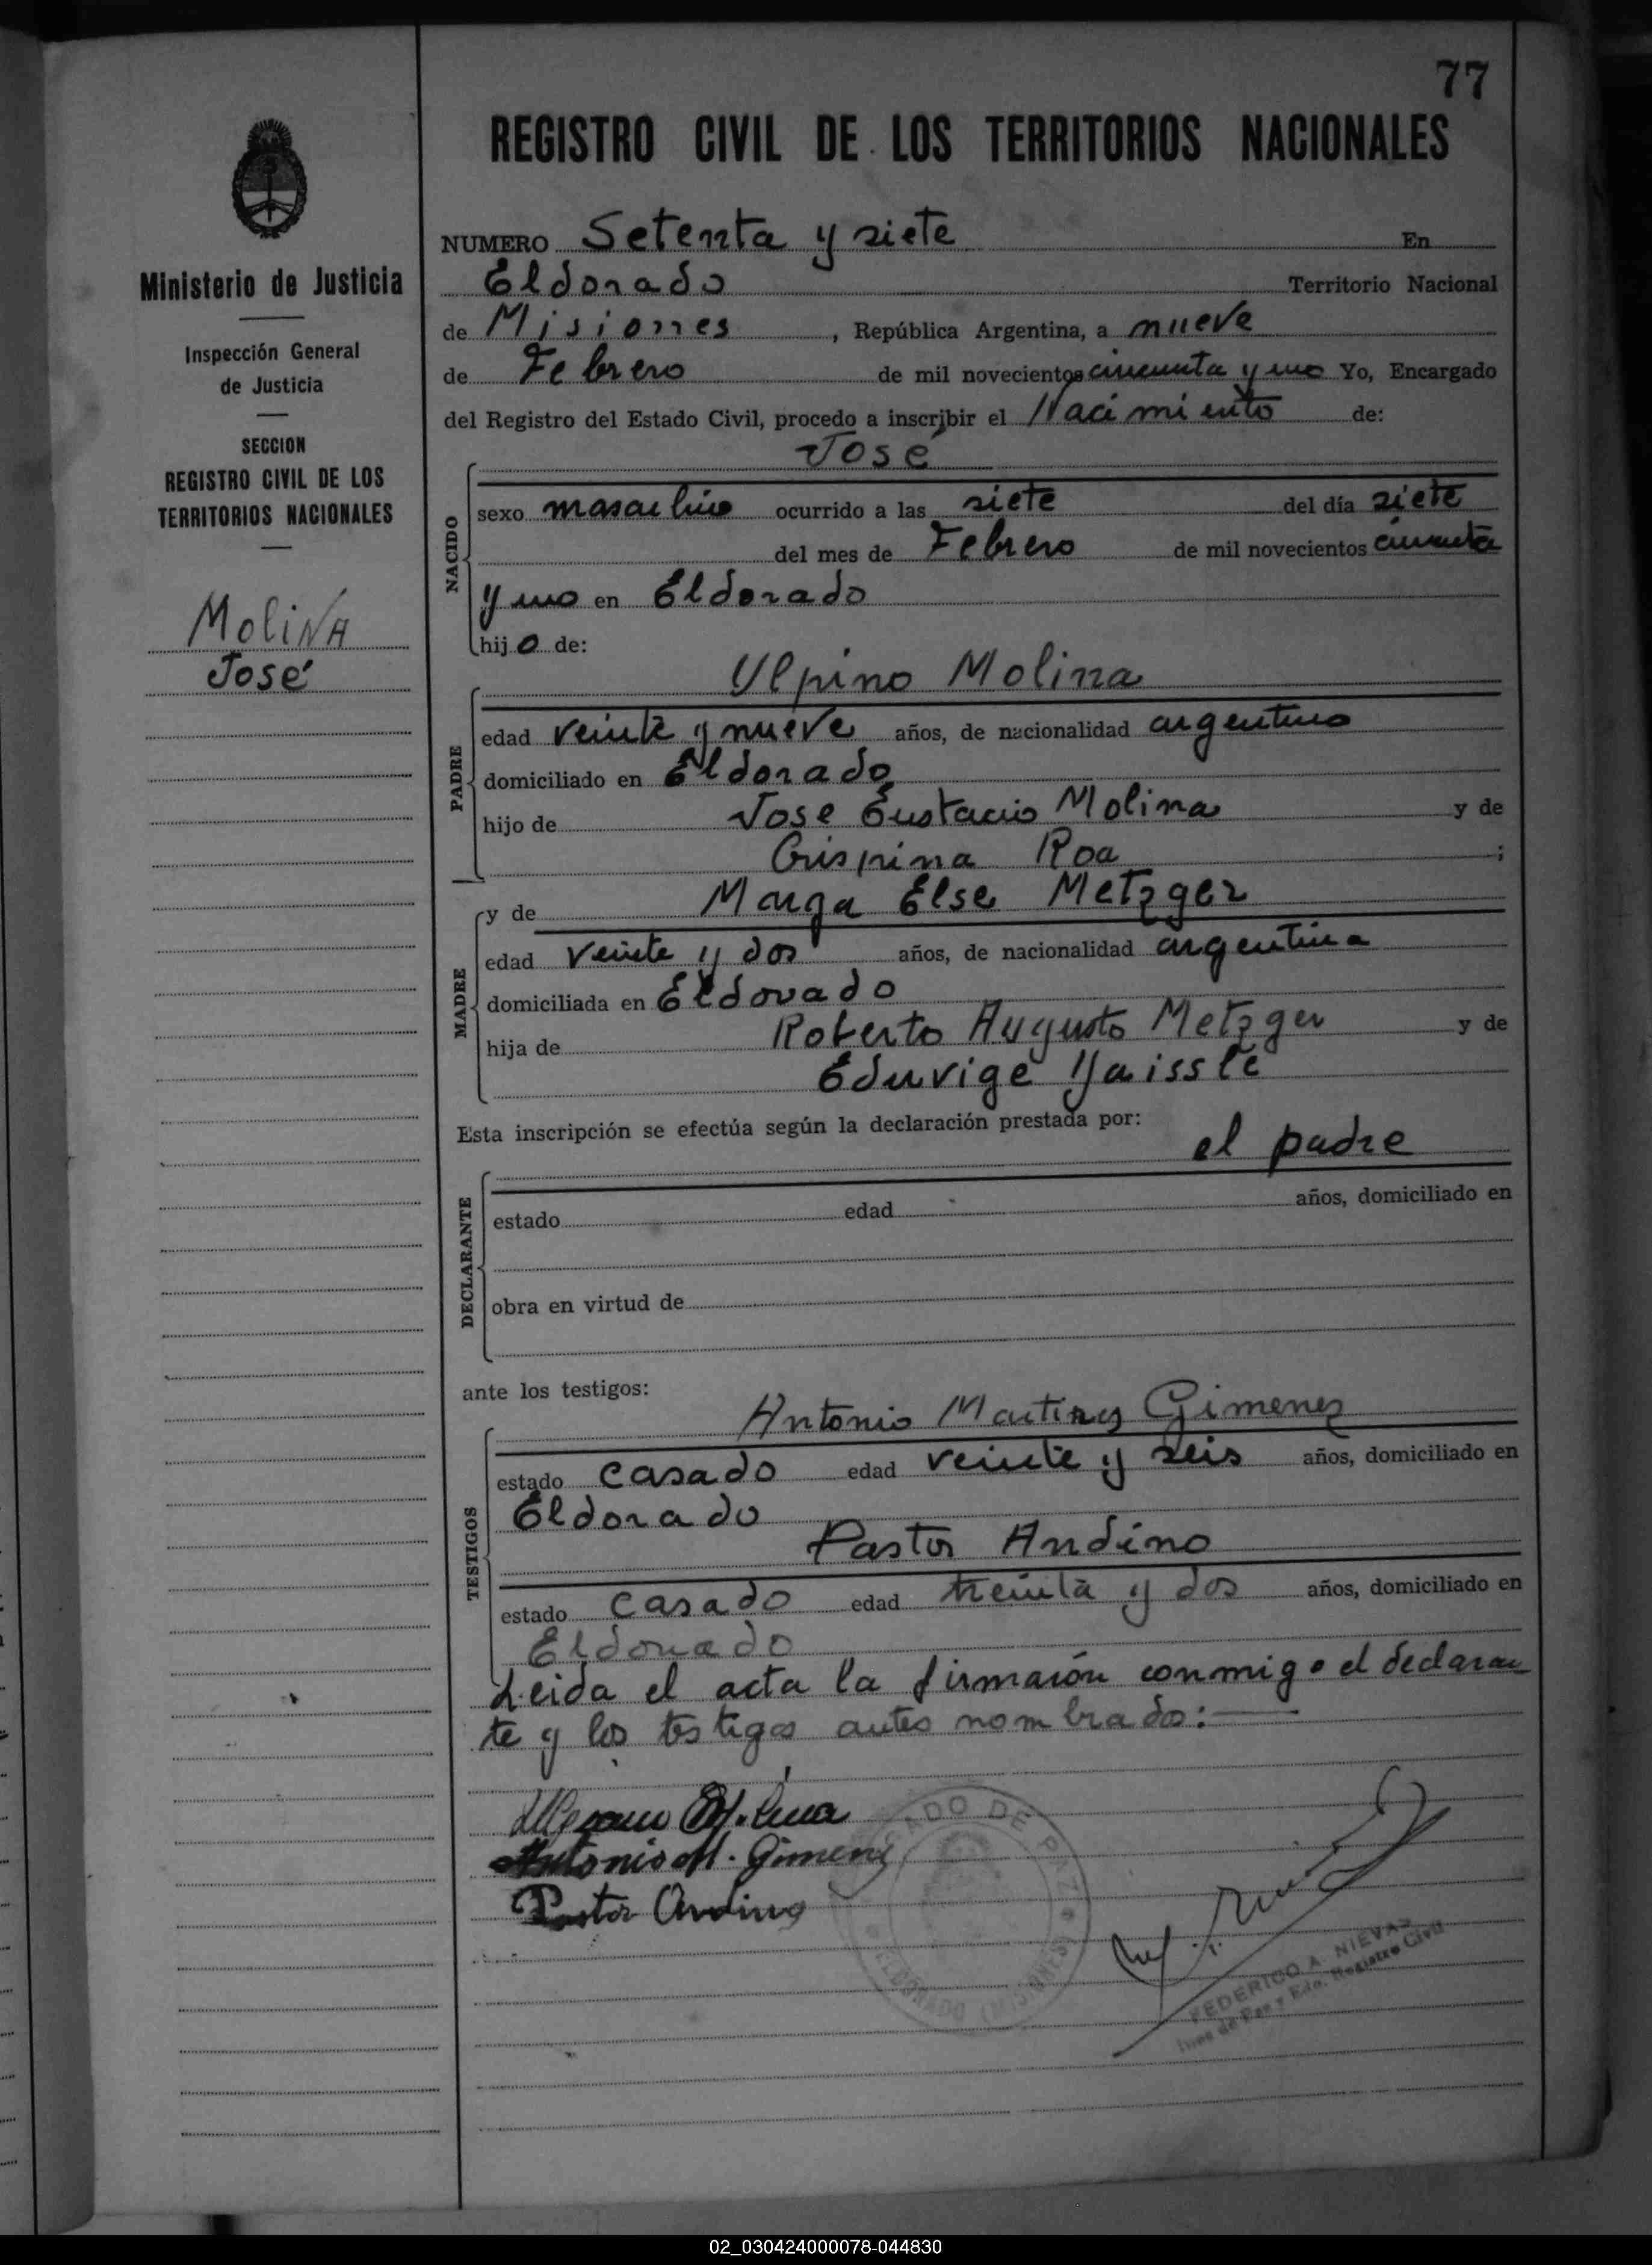 77
REGISTRO CIVIL DE LOS TERRITORIOS NACIONALES
Ministerio de Justicia
Inspección General
de Justicia
SECCION
REGISTRO CIVIL DE LOS
TERRITORIOS NACIONALES
Molina
José
NUMERO Setenta y siete En
Eldorado Territorio Nacional
de Misiones, República Argentina, a nueve
de Febrero de mil novecientos cincuenta y uno Yo, Encargado
del Registro del Estado Civil, procedo a inscribir el Nacimiento de:
José
NACIDO
sexo masculino ocurrido a las siete del día siete
del mes de Febrero de mil novecientos cincuenta
y uno en Eldorado
hijo de:
Ulpino Molina
PADRE
edad veinte y nueve años, de nacionalidad argentino
domiciliado en Eldorado
hijo de Jose Eustacio Molina y de
Crispina Roa ;
MADRE
y de Marga Else Metzger
edad veinte y dos años, de nacionalidad argentina
domiciliada en Eldorado
hija de Roberto Augusto Metzger y de
Eduvige Yaissle
Esta inscripción se efectúa según la declaración prestada por:
el padre
DECLARANTE
estado edad años, domiciliado en
obra en virtud de
ante los testigos:
Antonio Martinez Gimenez
TESTIGOS
estado casado edad veinte y seis años, domiciliado en
Eldorado
Pastor Andino
estado casado edad treinta y dos años, domiciliado en
Eldorado
Leida el acta la firmarón conmigo el declaran
te y los testigos antes nombrados:
Molina
Antonio M. Gimenez
Pastor Andino
JUZGADO DE PAZ
ELDORADO (MISIONES)
FEDERICO A. NIEVAS
Juez de Paz y Edo. Registro Civil
02_030424000078-044830